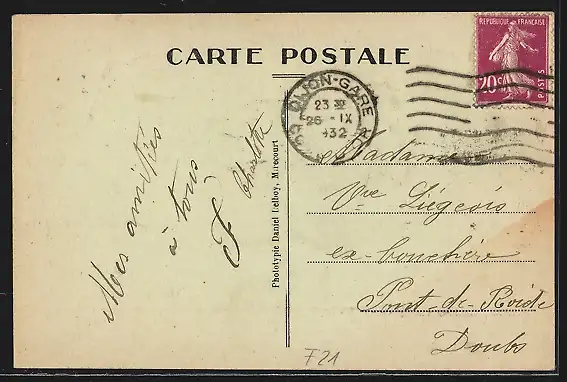 CARTE POSTALE
REPUBLIQUE FRANÇAISE
20c.
POSTES
DIJON-GARE
23 30
26 - IX
32
Mes amitiés
à tous
F Charlotte
Phototypie Daniel Delboy, Mirecourt
Madame
Vve Liégeois
ex-bouchère
Pont-de-Roide
Doubs
F21